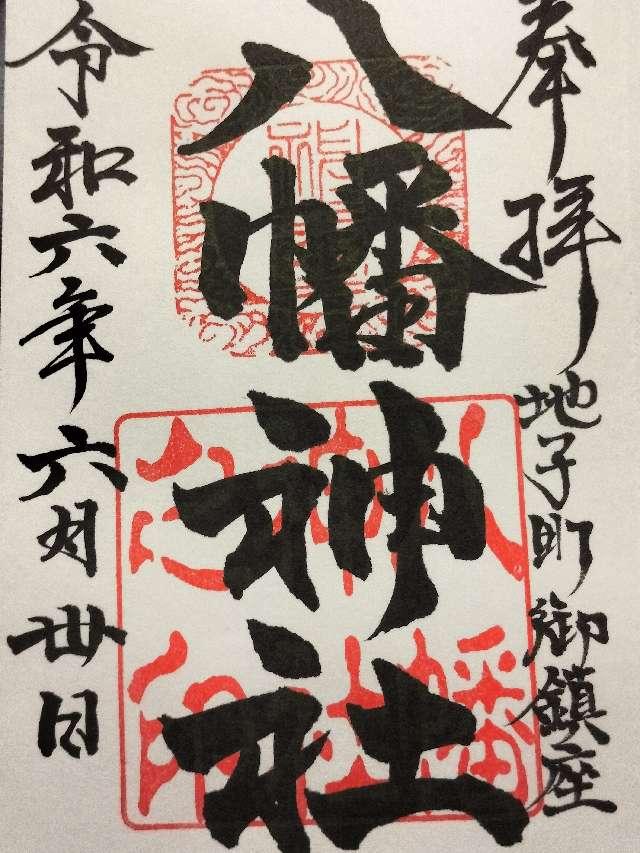 奉拝
地子町御鎮座
八幡神社
令和六年六月卅日